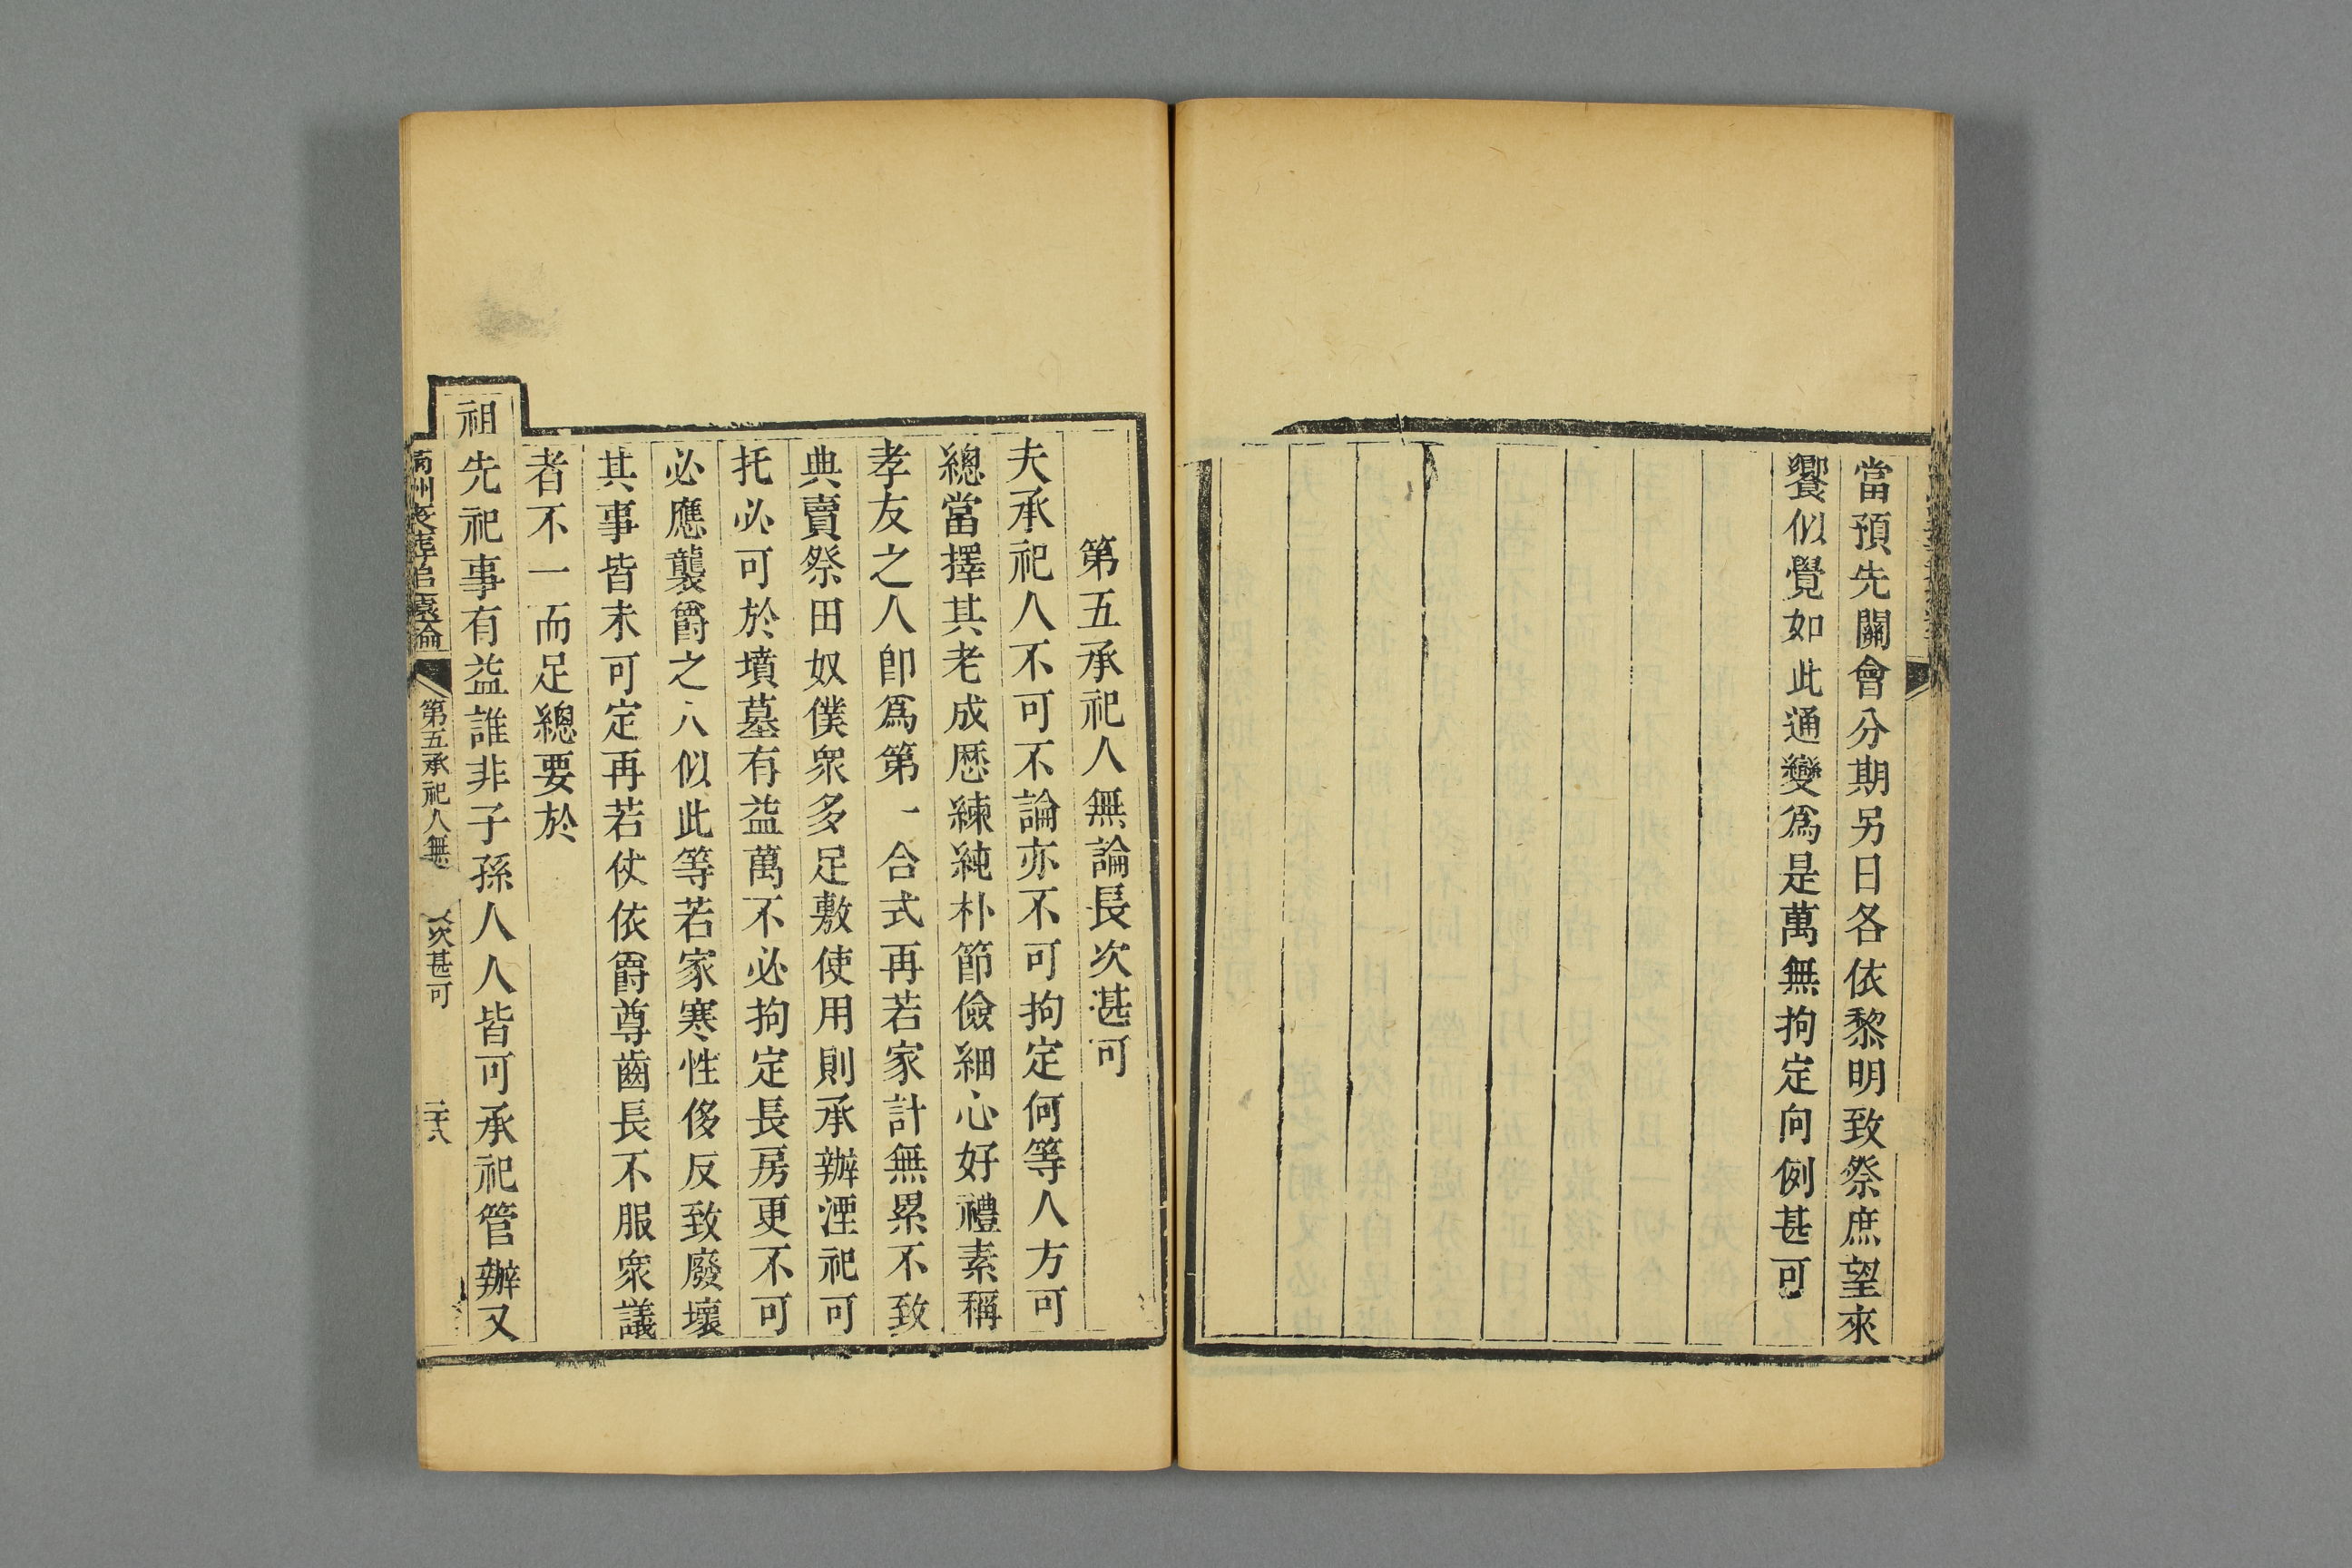 當預先關會分期另日各依黎明致祭庶望來
饗似覺如此通變爲是萬無拘定向例甚可
第五承祀人無論長次甚可
夫承祀人不可不論亦不可拘定何等人方可
總當擇其老成歷練純朴節儉細心好禮素稱
孝友之人卽爲第一合式再若家計無累不致
典賣祭田奴僕衆多足敷使用則承辦湮祀可
托必可於墳墓有益萬不必拘定長房更不可
必應襲爵之人似此等若家寒性侈反致廢壞
其事皆未可定再若仗依爵尊齒長不服衆議
者不一而足總要於
祖先祀事有益誰非子孫人人皆可承祀管辦又
第五承祀人無
次甚可
二十八